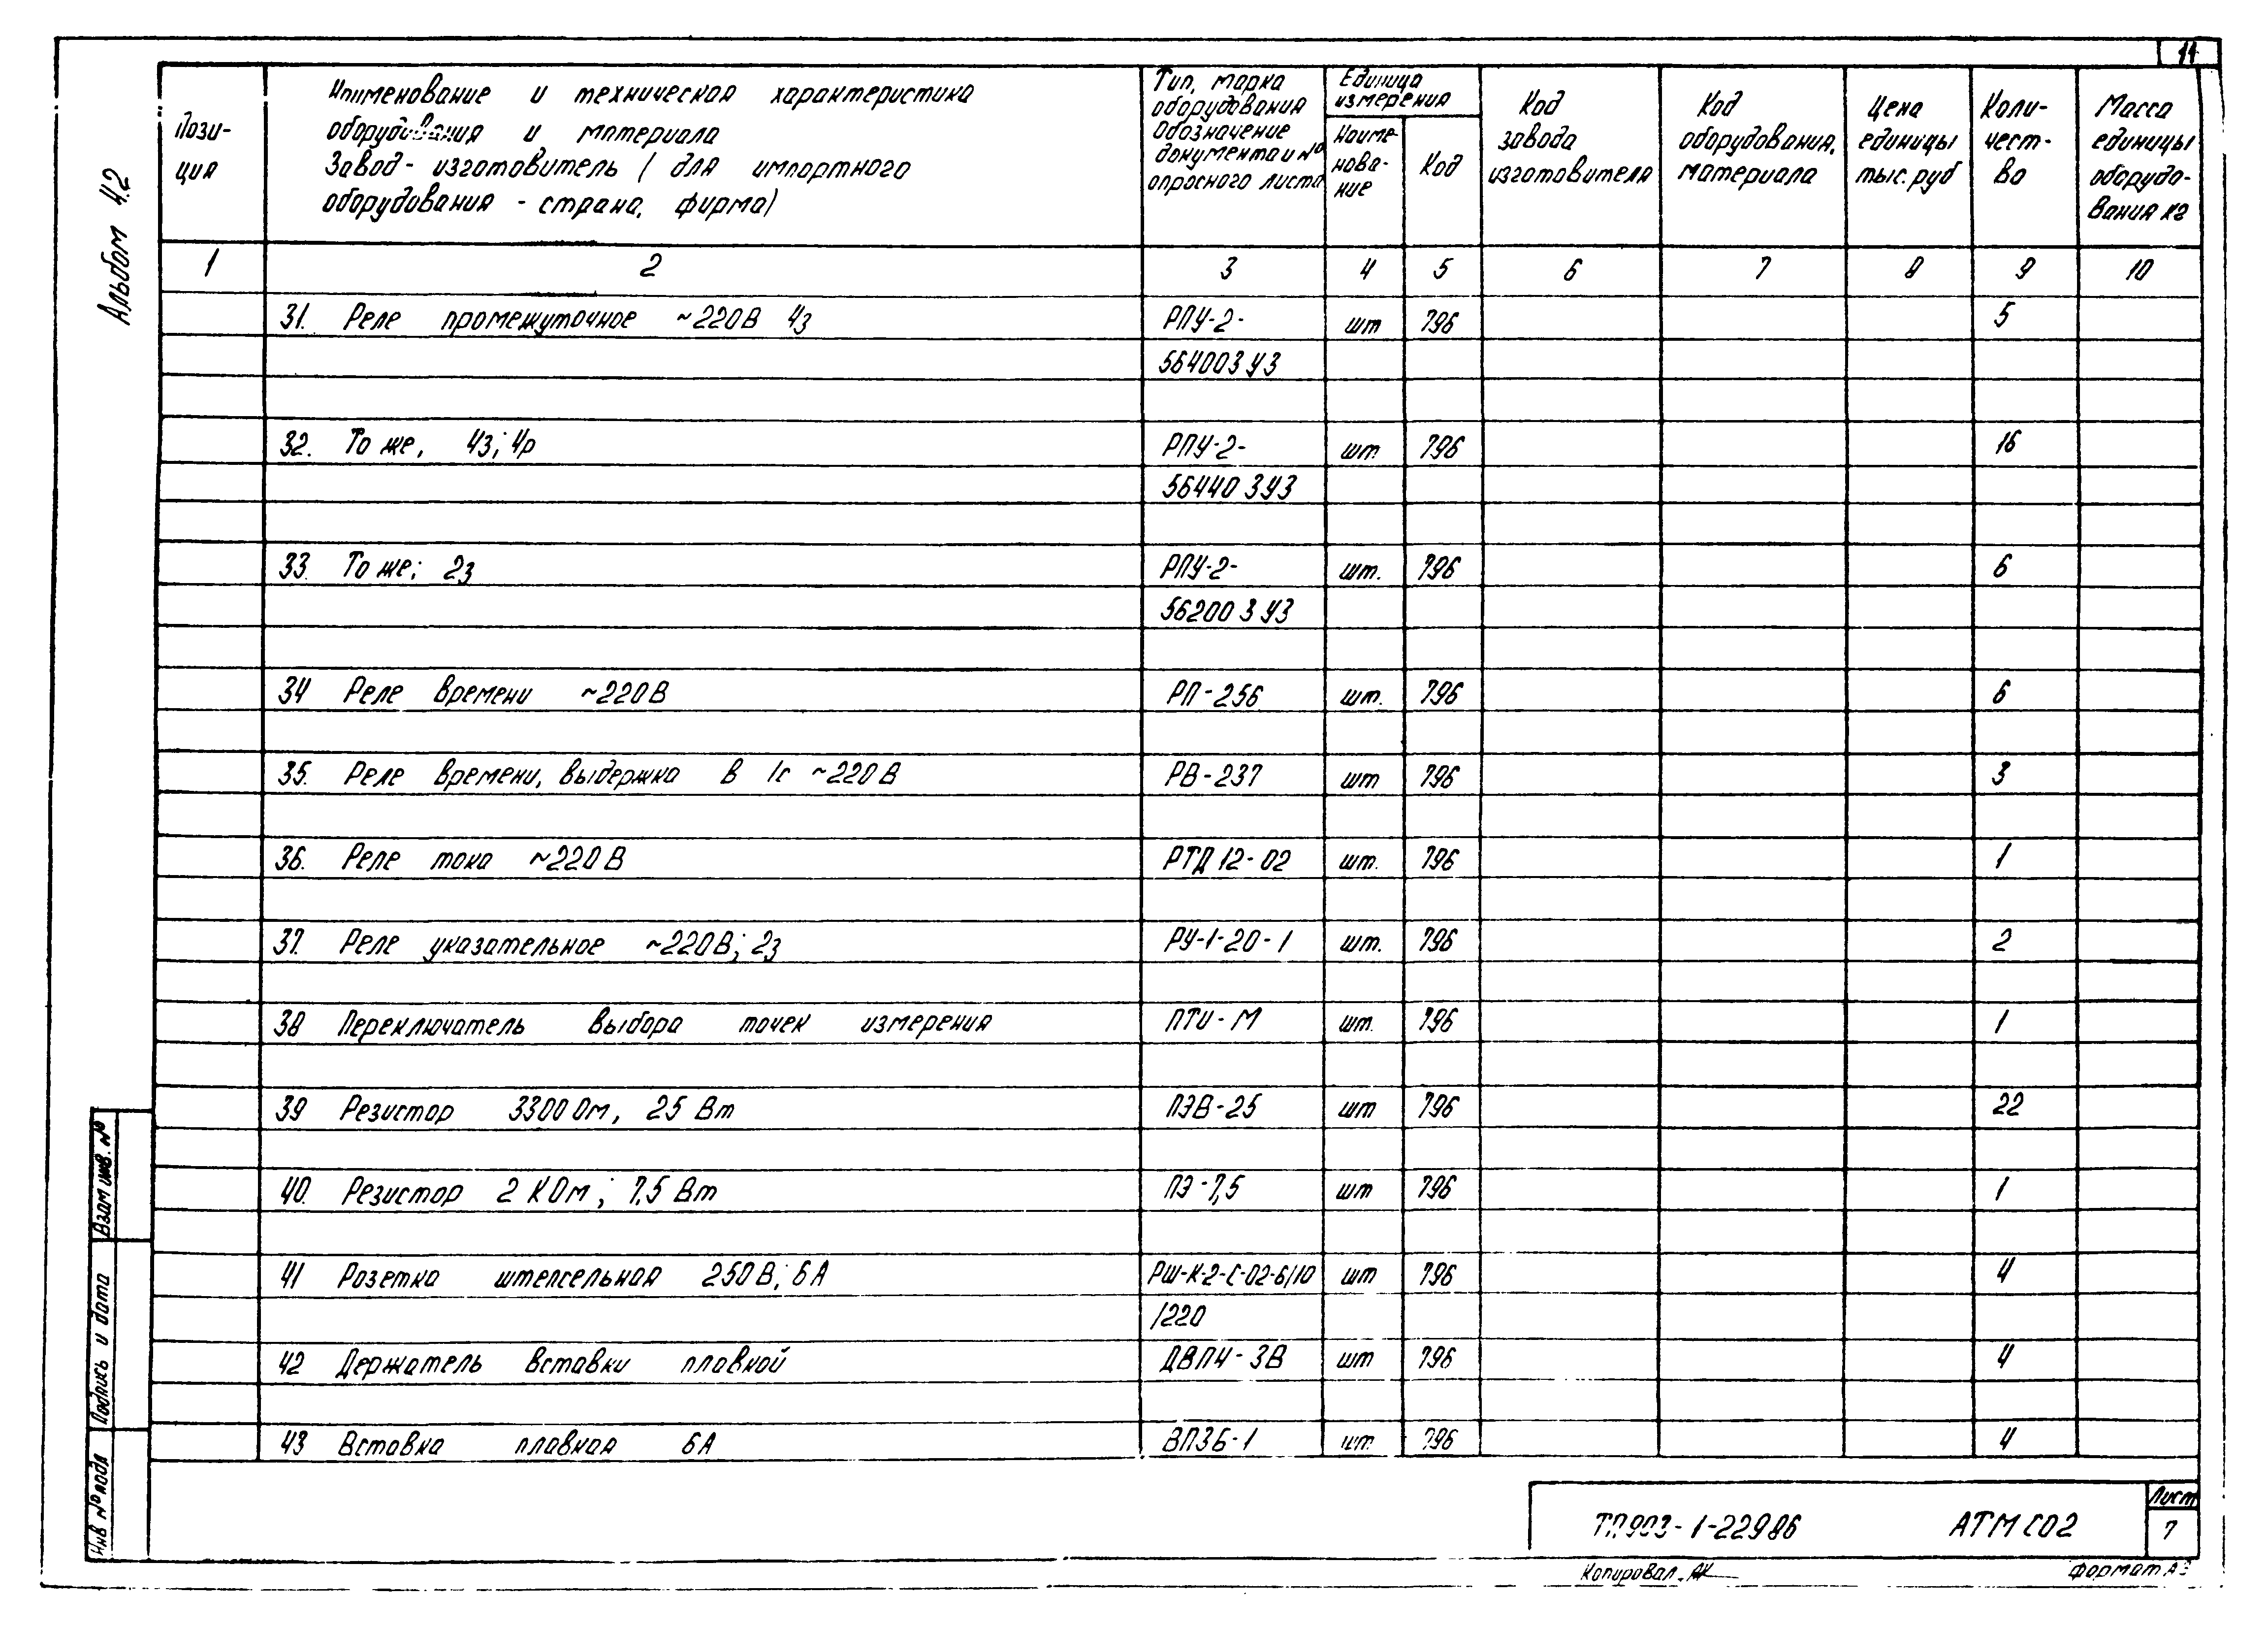 11
Альбом 4.2
Пози-
ция
Наименование и техническая характеристика
оборудования и материала
Завод-изготовитель (для импортного
оборудования - страна, фирма)
Тип, марка
оборудования
Обозначение
документа и №
опросного листа
Единица
измерения
Наиме-
нова-
ние
Код
Код
завода
изготовителя
Код
оборудования,
материала
Цена
единицы
тыс. руб
Коли-
чест-
во
Масса
единицы
оборудо-
вания кг
1 2 3 4 5 6 7 8 9 10
31. Реле промежуточное ~220В 4з РПУ-2- шт 796 5
564003У3
32. То же, 4з; 4р РПУ-2- шт. 796 16
564403У3
33. То же; 2з РПУ-2- шт. 796 6
562003У3
34 Реле времени ~220В РП-256 шт. 796 6
35. Реле времени, выдержка в 1с ~220В РВ-237 шт 796 3
36. Реле тока ~220В РТД 12-02 шт. 796 1
37. Реле указательное ~220В; 2з РУ-1-20-1 шт. 796 2
38 Переключатель выбора точек измерения ПТИ-М шт. 796 1
39 Резистор 3300 Ом, 25 Вт ПЭВ-25 шт 796 22
40. Резистор 2 КОм; 7,5 Вт ПЭ-7,5 шт 796 1
41 Розетка штепсельная 250В; 6А РШ-К-2-С-02-6/10 шт 796 4
/220
42 Держатель вставки плавкой ДВП4-3В шт 796 4
43 Вставка плавкая 6А ВП3Б-1 шт. 796 4
Взам инв. №
Подпись и дата
Инв № подл
ТП903-1-22986 АТМ СО2
Лист
7
Копировал. АК
Формат А3